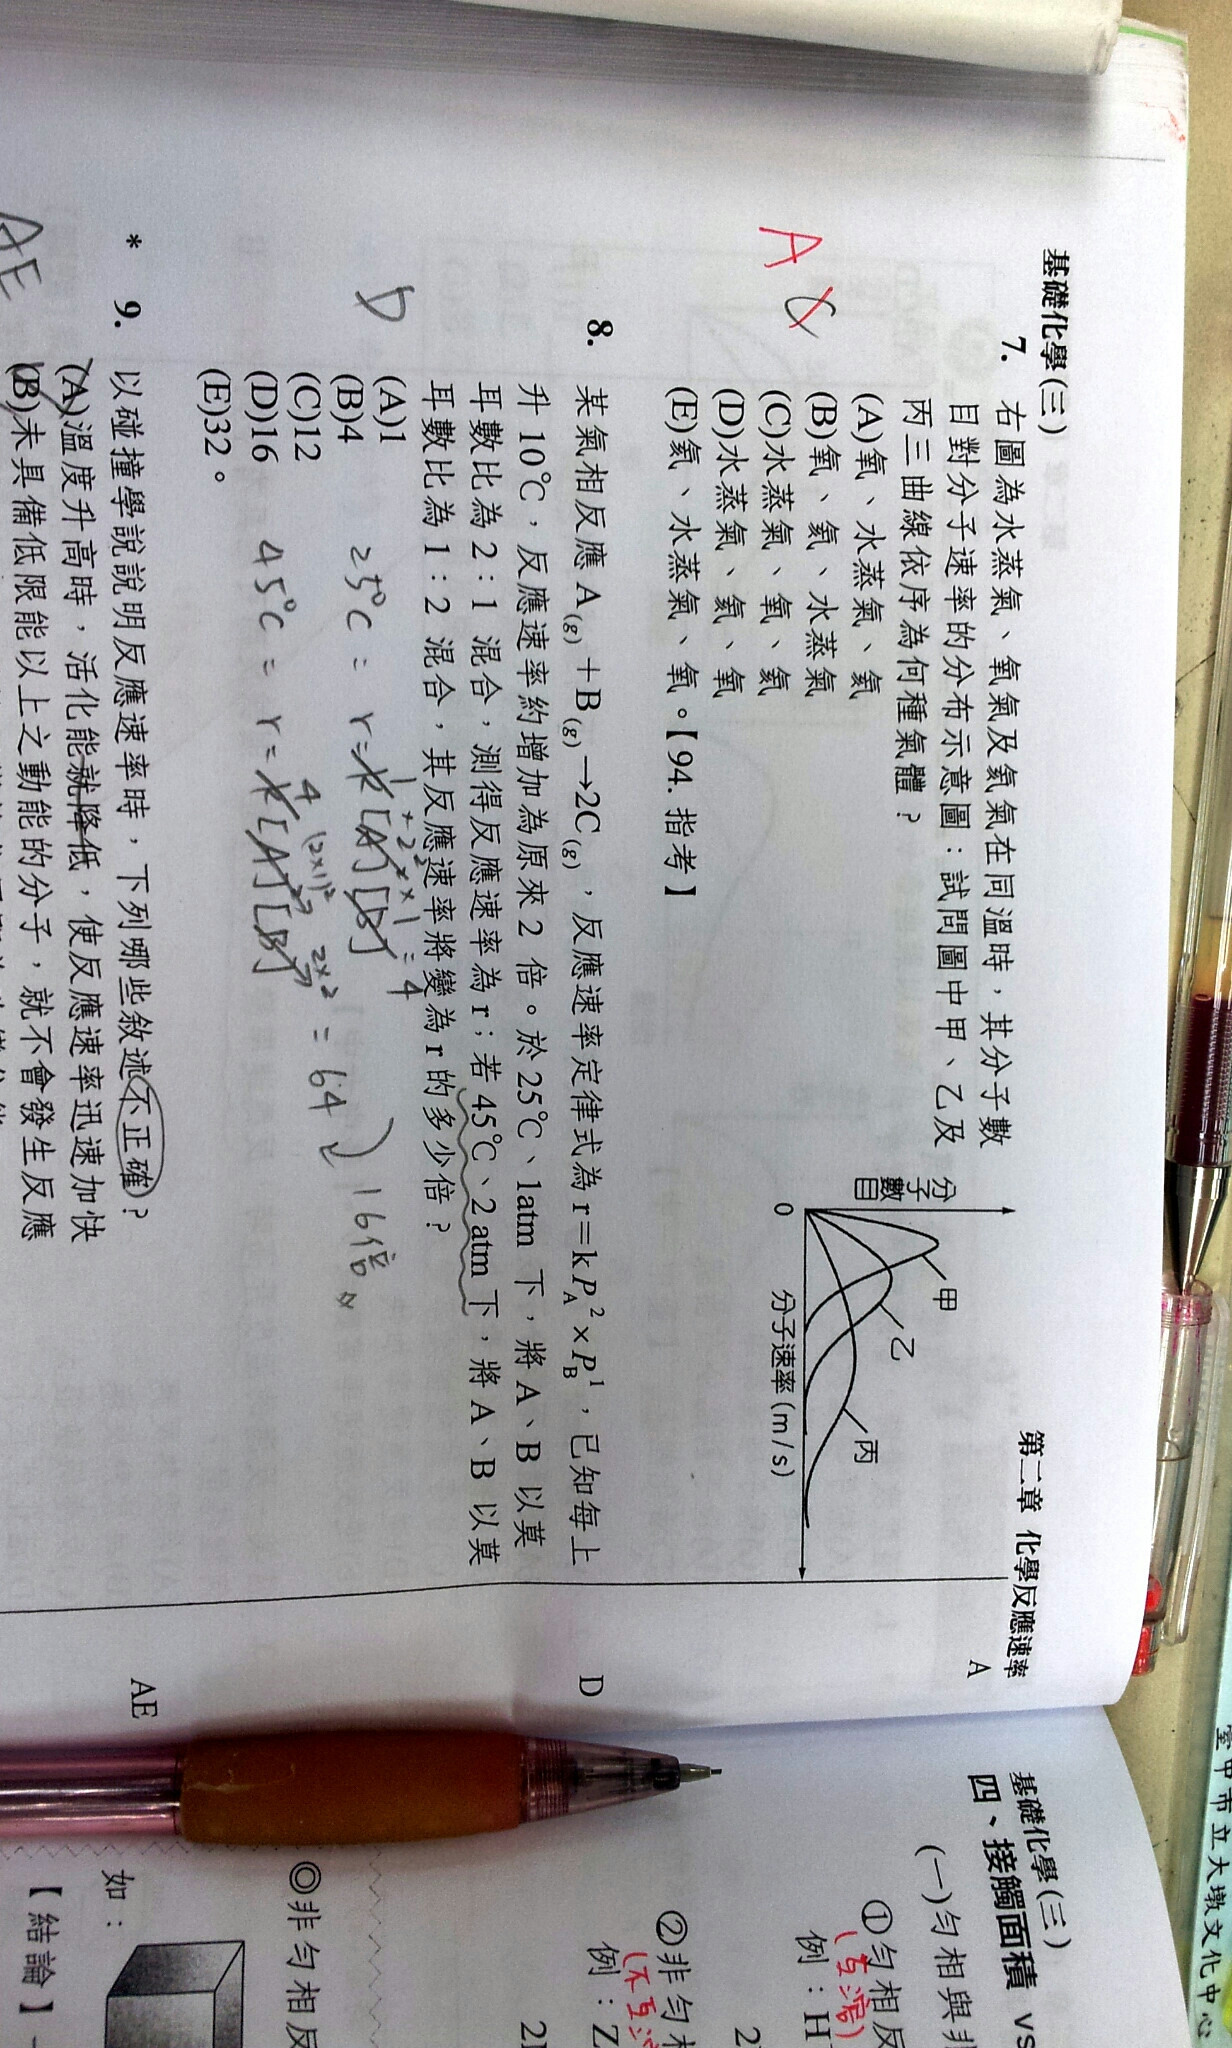 基礎化學(三)
第二章 化學反應速率
A
7. 右圖為水蒸氣、氧氣及氦氣在同溫時，其分子數
目對分子速率的分布示意圖：試問圖中甲、乙及
丙三曲線依序為何種氣體？
(A)氧、水蒸氣、氦
(B)氧、氦、水蒸氣
(C)水蒸氣、氧、氦
(D)水蒸氣、氦、氧
(E)氦、水蒸氣、氧。【94. 指考】
A
分子數目
甲
乙
丙
0
分子速率(m/s)
8. 某氣相反應 A(g)＋B(g)→2C(g)，反應速率定律式為 r＝kP_A²×P_B¹，已知每上
升 10℃，反應速率約增加為原來 2 倍。於 25℃、1atm 下，將 A、B 以莫
耳數比為 2：1 混合，測得反應速率為 r；若 45℃、2 atm 下，將 A、B 以莫
耳數比為 1：2 混合，其反應速率將變為 r 的多少倍？
(A)1
(B)4
(C)12
(D)16
(E)32。
D
D
1×2²×1=4
25℃ = r=k[A]²[B]
4 (2×1)² 2×2 = 64
45℃ = r=k[A]²[B]
16倍
* 9. 以碰撞學說說明反應速率時，下列哪些敘述不正確？
(A)溫度升高時，活化能就降低，使反應速率迅速加快
(B)未具備低限能以上之動能的分子，就不會發生反應
AE
AE
基礎化學(三)
四、接觸面積 vs
(一)勻相與非
①勻相反
(互溶)
例：H
2
②非勻相
(不互溶
例：Z
2
◎非勻相反
如：
【結論】
臺中市立大墩文化中心